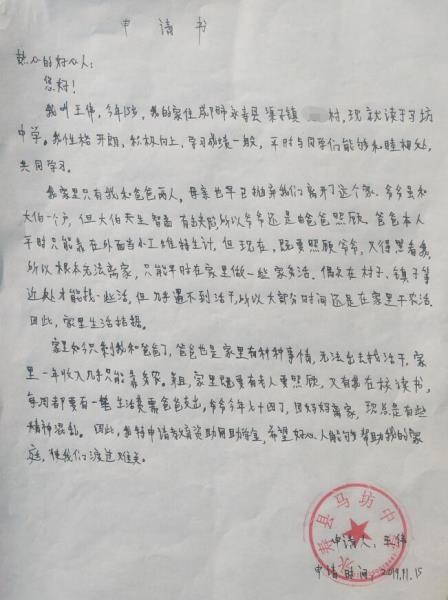 申请书
热心的好心人：
您好！
我叫王伟，今年15岁，我的家住咸阳市永寿县渠子镇 村，现就读于马坊
中学。我性格开朗，积极向上，学习成绩一般，平时与同学们能够和睦相处，
共同学习。
我家里只有我和爸爸两人，母亲也早已抛弃我们离开了这个家。爷爷虽和
大伯一户，但大伯天生智力有缺陷，所以爷爷还是由爸爸照顾。爸爸本人
平时只能靠在外面当小工维持生计，但现在，既要照顾爷爷，又得照看我，
所以根本无法离家，只能平时在家里做一些家务活。偶尔在村子、镇子等
近处才能找一些活，但几乎遇不到活干，所以大部分时间还是在家里干农活。
因此，家里生活拮据。
家里如今只剩我和爸爸了，爸爸也是家里有种种事情，无法出去找活干，家
里一年收入几乎只能靠务农。并且，家里既要有老人要照顾，又有我在校读书，
每周都要有一笔生活费需爸爸支出，爷爷今年七十四了，因奶奶离家，现总是有些
精神混乱。因此，我特申请教育资助用助学金，希望好心人能够帮助我的家
庭，使我们渡过难关。
永寿县马坊中学
申请人：王伟
申请时间：2019.11.15